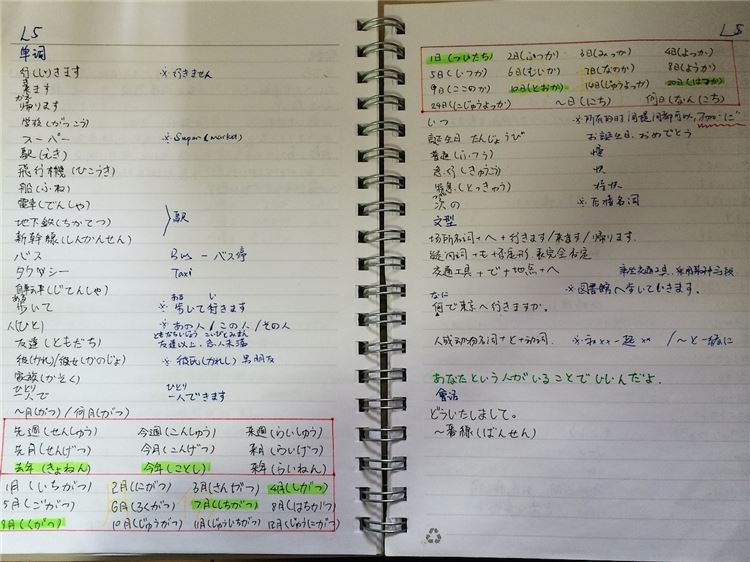 L5
单词
行(い)きます ※行きません
来ます
帰ります
学校(がっこう)
スーパー ※Super(market)
駅(えき)
飛行機(ひこうき)
船(ふね)
電車(でんしゃ)
地下鉄(ちかてつ) 駅
新幹線(しんかんせん)
バス Bus - バス停
タクシー Taxi
自転車(じてんしゃ)
歩いて ※歩いて行きます
人(ひと) ※あの人/この人/その人
友達(ともだち)
彼(かれ)/彼女(かのじょ) ※彼氏(かれし) 男朋友
家族(かぞく)
一人で 一人できます
~月(がつ)/何月(がつ)
先週(せんしゅう) 今週(こんしゅう) 来週(らいしゅう)
先月(せんげつ) 今月(こんげつ) 来月(らいげつ)
去年(きょねん) 今年(ことし) 来年(らいねん)
1月(いちがつ) 2月(にがつ) 3月(さんがつ) 4月(しがつ)
5月(ごがつ) 6月(ろくがつ) 7月(しちがつ) 8月(はちがつ)
9月(くがつ) 10月(じゅうがつ) 11月(じゅういちがつ) 12月(じゅうにがつ)
L5
1日(ついたち) 2日(ふつか) 3日(みっか) 4日(よっか)
5日(いつか) 6日(むいか) 7日(なのか) 8日(ようか)
9日(ここのか) 10日(とおか) 14日(じゅうよっか) 20日(はつか)
24日(にじゅうよっか) ~日(にち) 何日(なんにち)
いつ
誕生日 たんじょうび お誕生日、おめでとう
普通(ふつう) 慢
急行(きゅうこう) 快
特急(とっきゅう) 特快
次の ※后接名词
文型
场所名词+へ+行きます/来ます/帰ります.
疑问词+も+否定形 表完全否定
交通工具+で+地点+へ
※図書館へ歩いて行きます.
なに
何で東京へ行きますか.
人或动物名词+と+动词. ※和xx一起xx /~と一緒に
あなたという人がいることでいいんだよ.
會话
どういたしまして。
~番線(ばんせん)